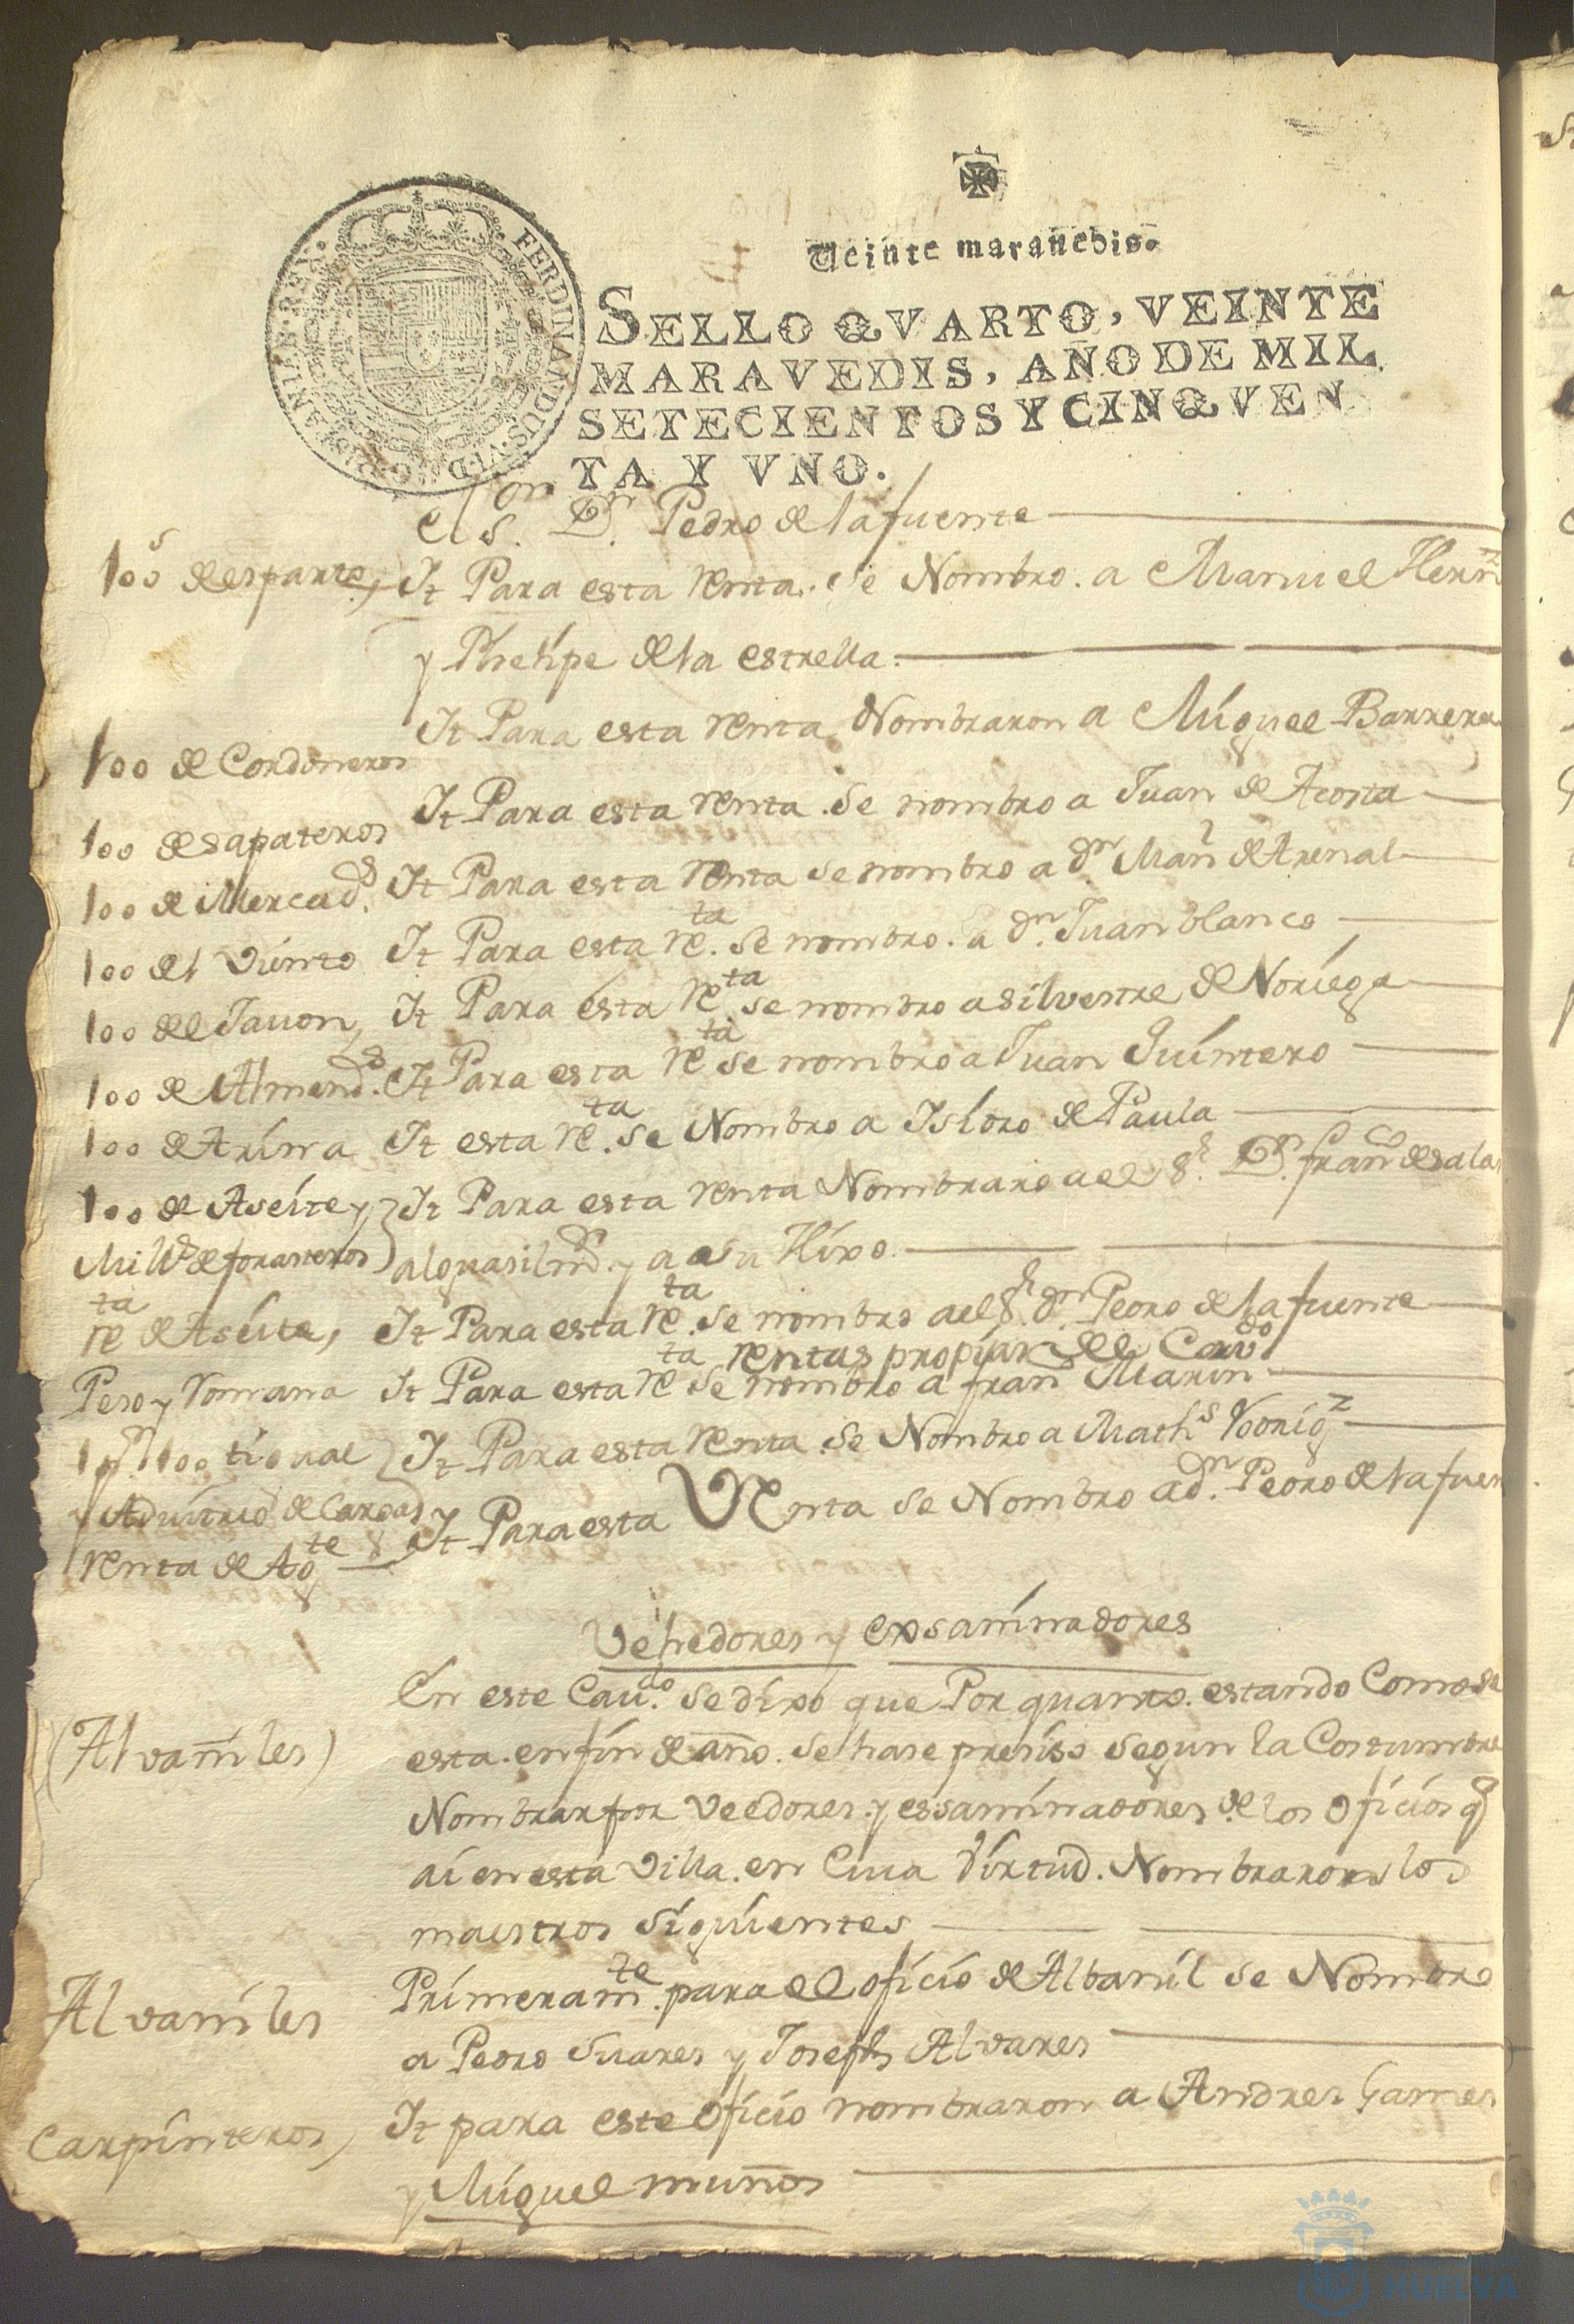 Veinte maravedis.
SELLO QVARTO, VEINTE
MARAVEDIS, AÑO DE MIL
SETECIENTOS Y CINQVEN
TA Y VNO.
FERDINANDUS·VI·D·G·HISPANIAR·REX·
el S.or D.n Pedro de la fuente
100s de esparto, It Para esta renta. se Nombro. a Manuel Hernz
y Phelipe de la estrella.
100 de Cordoneros It Para esta renta Nombraron a Miguel Barrera
100 de sapateros It Para esta renta. se nombro a Juan de Acosta
100 de Mercads. It Para esta renta se nombro a dn. Manl de Arenal
100 del Viento It Para esta reta. se nombro. a dn. Juan blanco
100 del Javon, It Para esta reta se nombro a silvestre de Noriega
100 de Almends. It Para esta reta se nombro a Juan Quintero
100 de Arina It esta reta. se Nombro a Isidro de Paula
100 de Aseite y It Para esta renta Nombraro a el Sr. Dn. franco de salas
Mills de forasteros alguasil mr. y a su Hixo.
reta de Aseite, It Para esta reta. se nombro a el Sr. dn. Pedro de la fuente
rentas propias del Cavdo
Peso y Romana It Para esta reta se nombro a fran Marin
It Para esta renta. se Nombro a Maths Rodrigz
Advitrio de Cargas y
renta de Agte It Para esta Renta se Nombro a dn. Pedro de la fuen
Vehedores y exsaminadores
En este Cavdo. se dixo que Por quanto. estando Como se
(Alvañiles) esta. en fin de año. se hase presiso segun la Costumbre
Nombrar por Veedores. y essaminadores de los oficios q
ai en esta Villa. en Cuia Virtud. Nombraron los
maestros siguientes
Alvañiles Primeramte. para el oficio de Albañil se Nombro
a Pedro Suares y Joseph Alvares
Carpinteros, It para este oficio nombraron a Andres Games
y Miguel muños
HUELVA